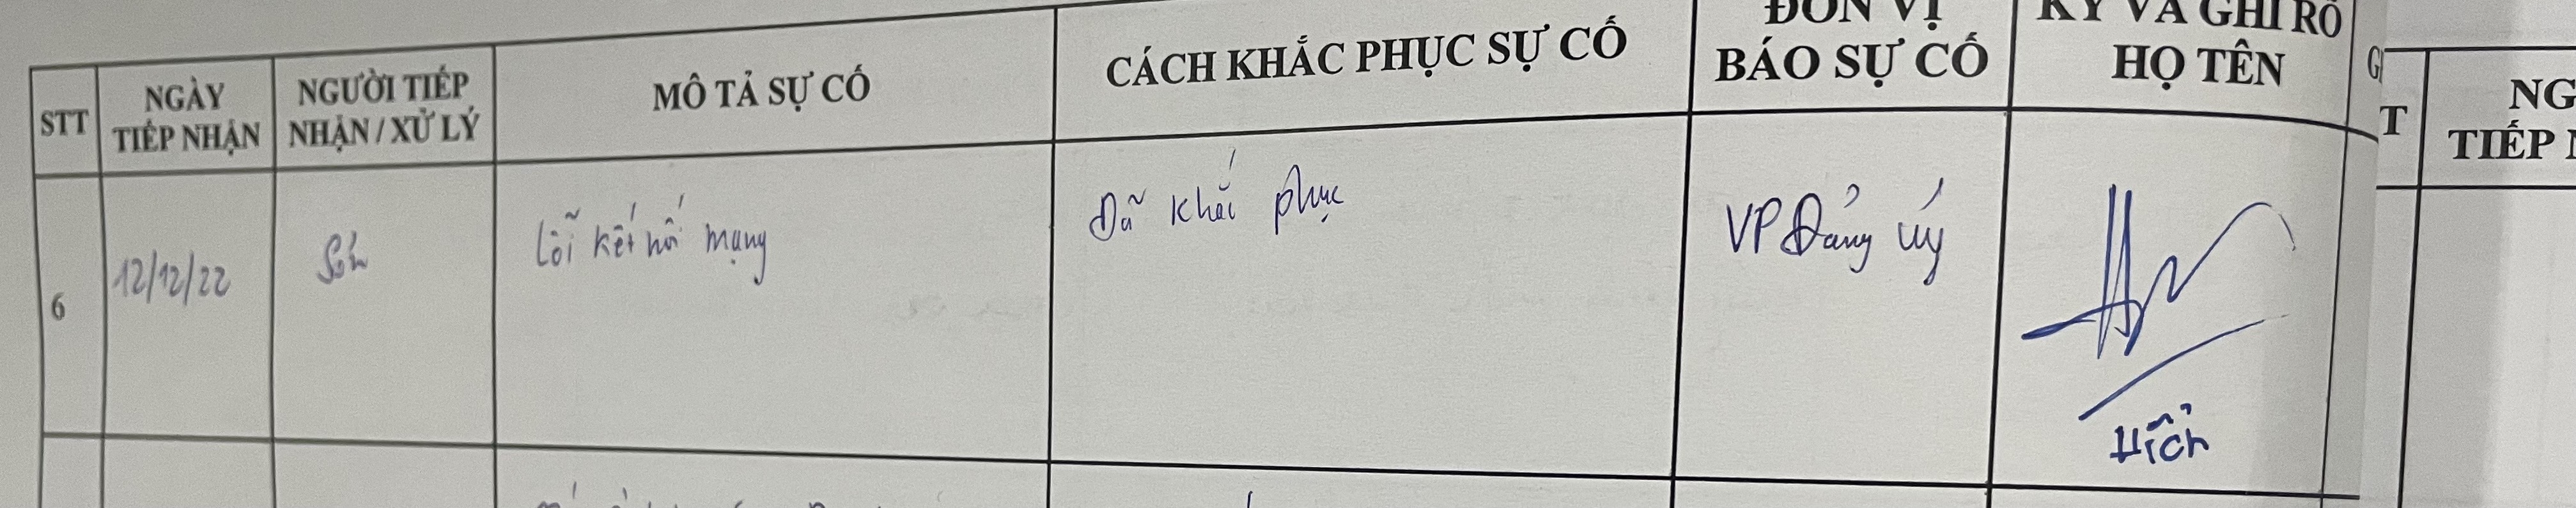 STT
NGÀY
TIẾP NHẬN
NGƯỜI TIẾP
NHẬN / XỬ LÝ
MÔ TẢ SỰ CỐ
CÁCH KHẮC PHỤC SỰ CỐ
ĐƠN VỊ
BÁO SỰ CỐ
KÝ VÀ GHI RÕ
HỌ TÊN
T
NG
TIẾP
6
12/12/22
Lỗi kết nối mạng
Đã khắc phục
VP Đảng ủy